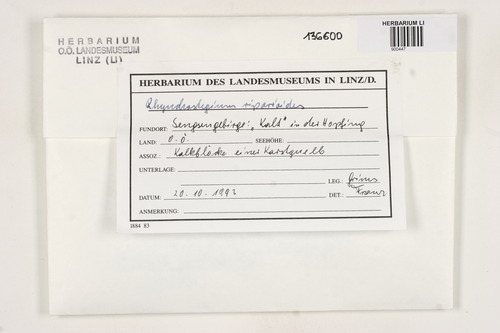 HERBARIUM
O.Ö. LANDESMUSEUM
LINZ (LI)
136600
HERBARIUM LI
900447
HERBARIUM DES LANDESMUSEUMS IN LINZ/D.
Rhynchostegium riparioides
FUNDORT: Sengsengebirge: „Kalt" in der Hopfing
LAND: O.Ö. SEEHÖHE:
ASSOZ.: Kalkblöcke einer Karstquelle
UNTERLAGE:
LEG.: Grims
DATUM: 20.10.1993 DET.: Franz
ANMERKUNG:
1884 83